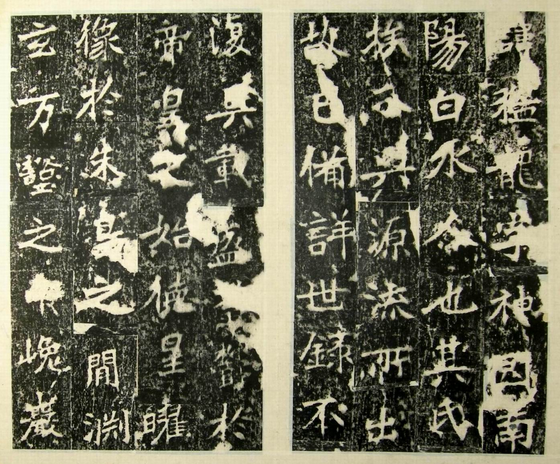 諱猛龍字神囧南
陽白水人也其氏
族分興源流所出
故已備詳世錄不
復具載盛於
帝皇之始德星曜
像於朱鳥之閒淵
玄万壑之中巉巖